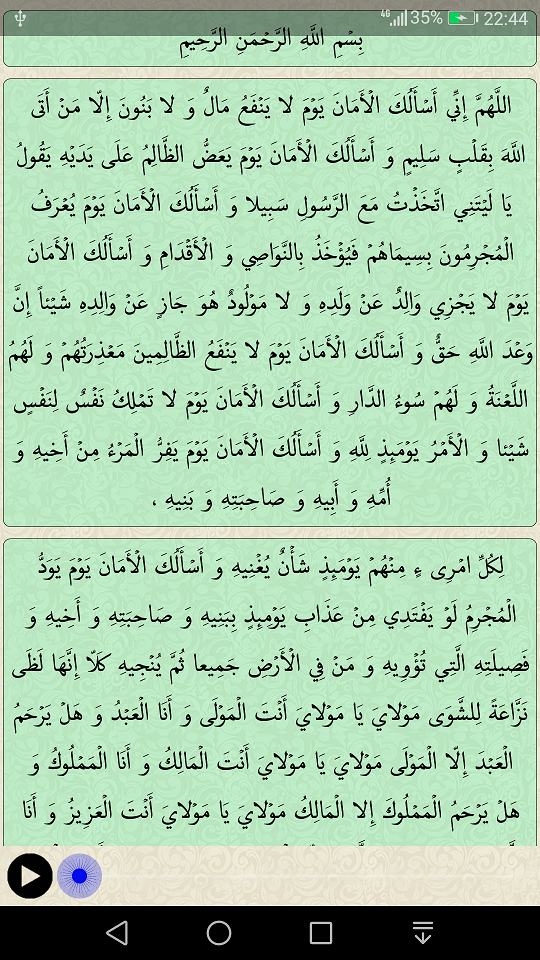 4G 35% 22:44
بِسْمِ اللَّهِ الرَّحْمَنِ الرَّحِيمِ
اللَّهُمَّ إِنِّي أَسْأَلُكَ الْأَمَانَ يَوْمَ لا يَنْفَعُ مَالٌ وَ لا بَنُونَ إِلّا مَنْ أَتَى
اللَّهَ بِقَلْبٍ سَلِيمٍ وَ أَسْأَلُكَ الْأَمَانَ يَوْمَ يَعَضُّ الظَّالِمُ عَلَى يَدَيْهِ يَقُولُ
يَا لَيْتَنِي اتَّخَذْتُ مَعَ الرَّسُولِ سَبِيلا وَ أَسْأَلُكَ الْأَمَانَ يَوْمَ يُعْرَفُ
الْمُجْرِمُونَ بِسِيمَاهُمْ فَيُؤْخَذُ بِالنَّوَاصِي وَ الْأَقْدَامِ وَ أَسْأَلُكَ الْأَمَانَ
يَوْمَ لا يَجْزِي وَالِدٌ عَنْ وَلَدِهِ وَ لا مَوْلُودٌ هُوَ جَازٍ عَنْ وَالِدِهِ شَيْئاً إِنَّ
وَعْدَ اللَّهِ حَقٌّ وَ أَسْأَلُكَ الْأَمَانَ يَوْمَ لا يَنْفَعُ الظَّالِمِينَ مَعْذِرَتُهُمْ وَ لَهُمُ
اللَّعْنَةُ وَ لَهُمْ سُوءُ الدَّارِ وَ أَسْأَلُكَ الْأَمَانَ يَوْمَ لا تَمْلِكُ نَفْسٌ لِنَفْسٍ
شَيْئا وَ الْأَمْرُ يَوْمَئِذٍ لِلَّهِ وَ أَسْأَلُكَ الْأَمَانَ يَوْمَ يَفِرُّ الْمَرْءُ مِنْ أَخِيهِ وَ
أُمِّهِ وَ أَبِيهِ وَ صَاحِبَتِهِ وَ بَنِيهِ ،
لِكُلِّ امْرِى ءٍ مِنْهُمْ يَوْمَئِذٍ شَأْنٌ يُغْنِيهِ وَ أَسْأَلُكَ الْأَمَانَ يَوْمَ يَوَدُّ
الْمُجْرِمُ لَوْ يَفْتَدِي مِنْ عَذَابِ يَوْمِئِذٍ بِبَنِيهِ وَ صَاحِبَتِهِ وَ أَخِيهِ وَ
فَصِيلَتِهِ الَّتِي تُؤْوِيهِ وَ مَنْ فِي الْأَرْضِ جَمِيعا ثُمَّ يُنْجِيهِ كَلّا إِنَّهَا لَظَى
نَزَّاعَةً لِلشَّوَى مَوْلايَ يَا مَوْلايَ أَنْتَ الْمَوْلَى وَ أَنَا الْعَبْدُ وَ هَلْ يَرْحَمُ
الْعَبْدَ إِلّا الْمَوْلَى مَوْلايَ يَا مَوْلايَ أَنْتَ الْمَالِكُ وَ أَنَا الْمَمْلُوكُ وَ
هَلْ يَرْحَمُ الْمَمْلُوكَ إِلا الْمَالِكُ مَوْلايَ يَا مَوْلايَ أَنْتَ الْعَزِيزُ وَ أَنَا